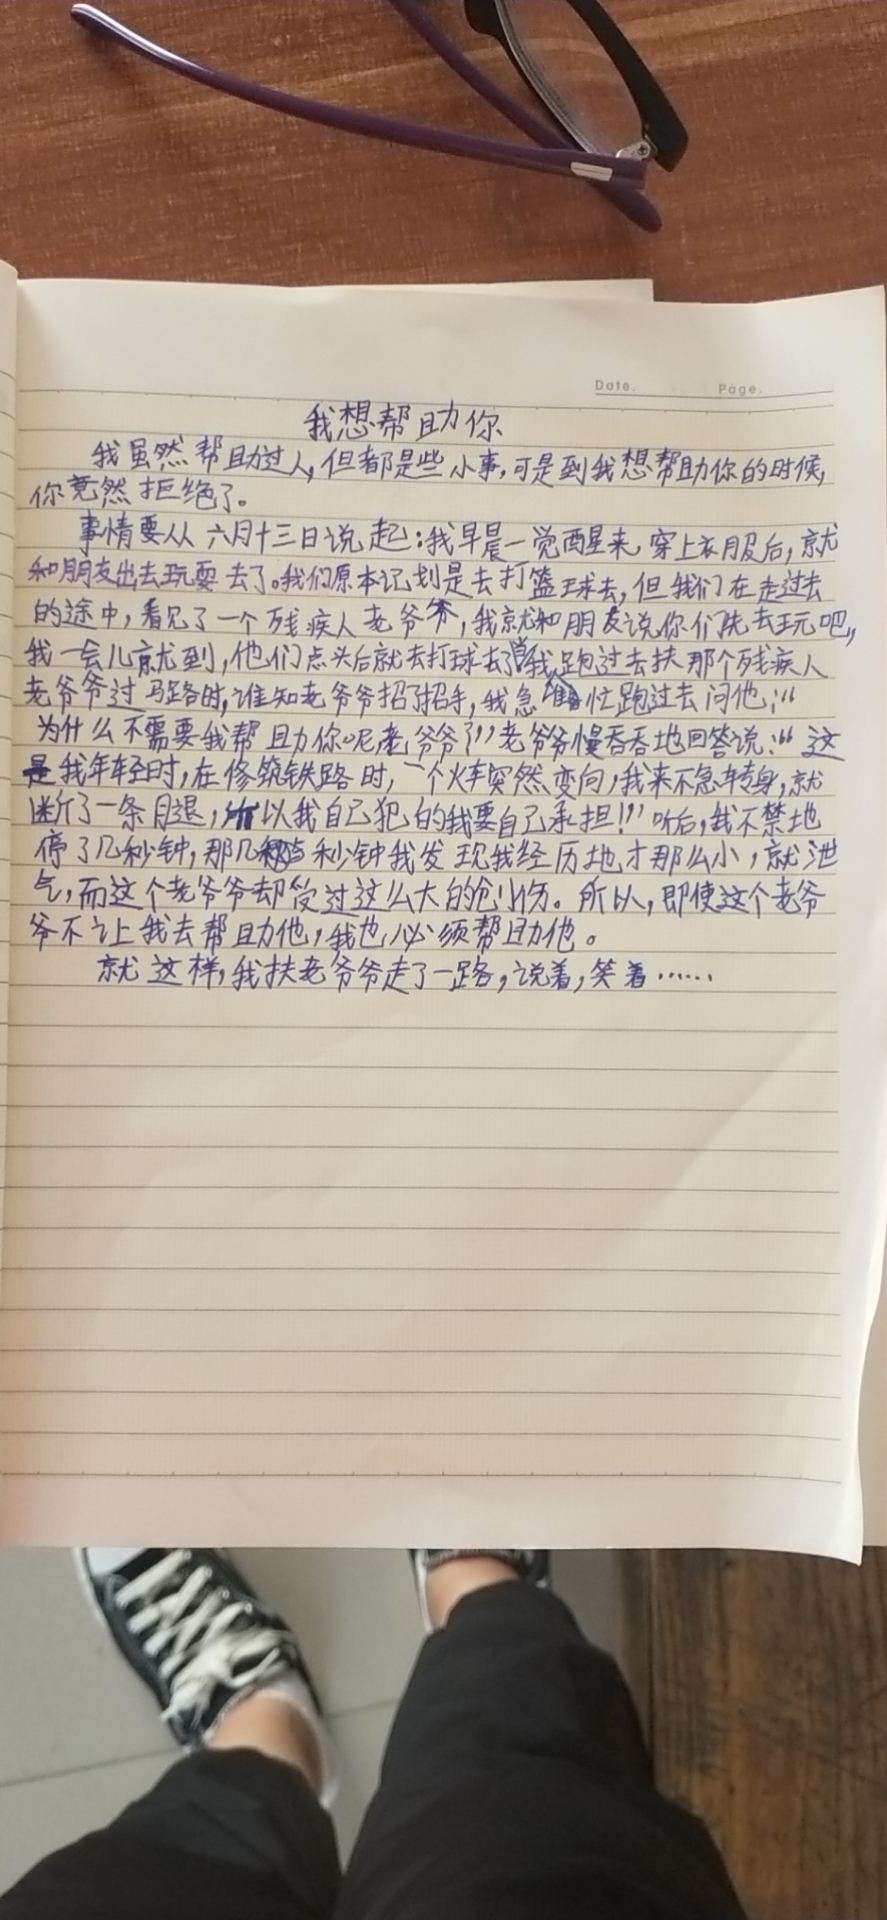 Date. Page.
我想帮助你
我虽然帮助过人,但都是些小事,可是到我想帮助你的时候,
你竟然拒绝了。
事情要从六月十三日说起:我早晨一觉醒来,穿上衣服后,就
和朋友出去玩耍去了。我们原本计划是去打篮球去,但我们在走过去
的途中,看见了一个残疾人老爷爷,我就和朋友说你们先去玩吧,
我一会儿就到,他们点头后就去打球去了,我跑过去扶那个残疾人
老爷爷过马路时,谁知老爷爷招了招手,我急忙跑过去问他:“
为什么不需要我帮助你呢老爷爷?”老爷爷慢吞吞地回答说:“这
是我年轻时,在修筑铁路时,一个火车突然变向,我来不急转身,就
断了一条腿,所以我自己犯的我要自己承担!”听后,我不禁地
停了几秒钟,那几秒钟我发现我经历地才那么小,就泄
气,而这个老爷爷却受过这么大的创伤。所以,即使这个老爷
爷不让我去帮助他,我也必须帮助他。
就这样,我扶老爷爷走了一路,说着,笑着……